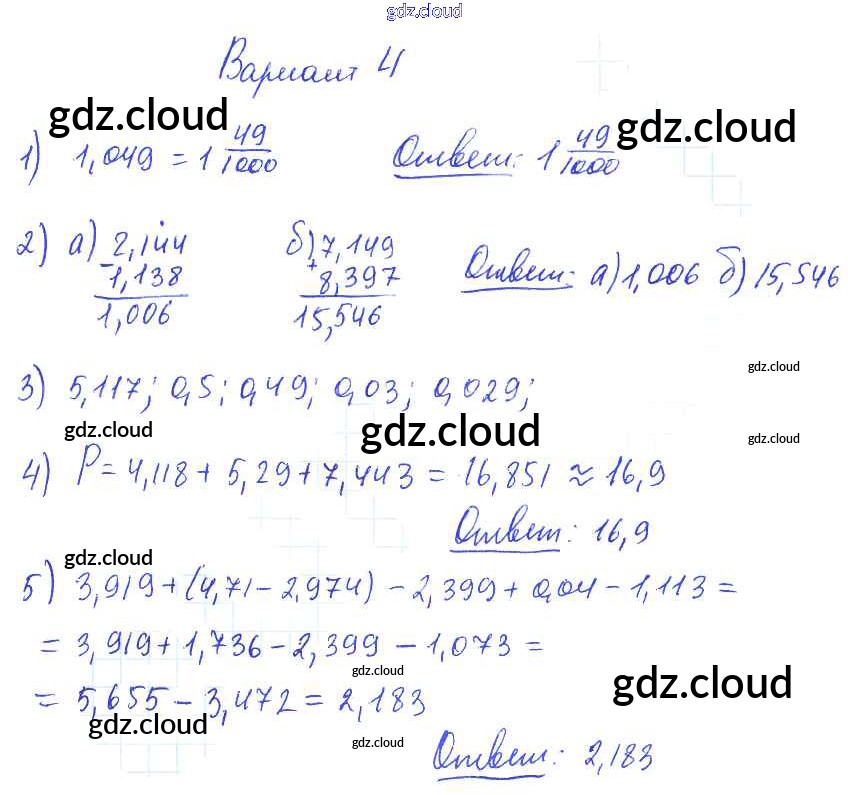 gdz.cloud
Вариант 4
gdz.cloud gdz.cloud
1) 1,049 = 1 49/1000 Ответ: 1 49/1000
2) а) 2,144 - 1,138 = 1,006 б) 7,149 + 8,397 = 15,546 Ответ: а) 1,006 б) 15,546
gdz.cloud
3) 5,117; 0,5; 0,49; 0,03; 0,029;
gdz.cloud gdz.cloud gdz.cloud
4) P = 4,118 + 5,29 + 7,443 = 16,851 ≈ 16,9
Ответ: 16,9
gdz.cloud
5) 3,919 + (4,71 - 2,974) - 2,399 + 0,04 - 1,113 =
= 3,919 + 1,736 - 2,399 - 1,073 =
gdz.cloud gdz.cloud
= 5,655 - 3,472 = 2,183
gdz.cloud gdz.cloud
Ответ: 2,183